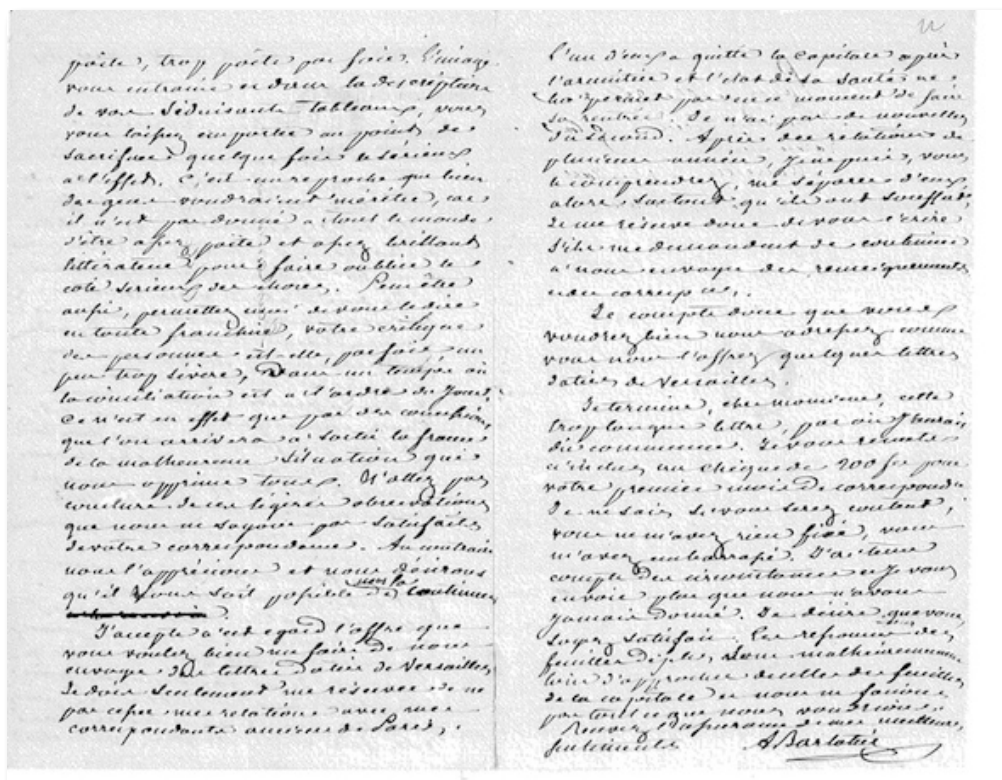 poète, trop poète par fois. L'image
vous entraine et dans la description
de vos séduisants tableaux, vous
vous laissez emporter au point de
sacrifier quelque fois le sérieux
à l'effet. C'est un reproche que bien
des gens voudraient mériter, car
il n'est pas donné à tout le monde
d'être assez poète et assez brillant
littérateur pour faire oublier le
coté sérieux des choses. Peut être
aussi, permettez moi de vous le dire
en toute franchise, votre critique
des personnes est-elle, par fois, un
peu trop sévère, dans un temps où
la conciliation est à l'ordre du jour.
Ce n'est en effet que par des concessions
que l'on arrivera à sortir la france
de la malheureuse situation qui
nous opprime tous. N'allez pas
conclure de ces légères observations
que nous ne soyons pas satisfaits
de votre correspondance. Au contraire
nous l'apprécions et nous désirons
qu'il vous soit possible de nous la continuer
J'accepte à cet égard l'offre que
vous voulez bien me faire de nous
envoyer des lettres datées de Versailles
Je dois seulement me réserver de ne
pas cesser mes relations avec mes
correspondants anciens de Paris.
l'un d'eux a quitté la capitale après
l'armistice et l'état de sa santé ne
lui permet pas en ce moment de faire
sa rentrée. Je n'ai pas de nouvelles
du second. Après des relations de
plusieurs années, je ne puis, vous
le comprendrez, me séparer d'eux
alors surtout qu'ils ont souffert,
Je me réserve donc de vous écrire
s'ils me demandent de continuer
à nous envoyer des renseignements
Je compte donc que vous
voudrez bien nous adresser comme
vous nous l'offrez quelques lettres
datées de Versailles
Je termine, cher monsieur, cette
trop longue lettre, par où j'aurais
dû commencer. Je vous remets
ci inclus un chèque de 200 f. pour
votre premier envoi de correspond.
Je ne sais si vous serez content,
vous ne m'avez rien fixé, vous
m'avez embarrassé. J'ai tenu
compte des circonstances et je vous
envoie plus que nous n'avons
jamais donné. Je désire que vous
soyez satisfait. Les ressources des
feuilles dépt. sont malheureusement
loin d'approcher de celles des feuilles
de la capitale et nous ne faisons
pas tout ce que nous voudrions.
Recevez l'assurance de mes meilleurs
sentiments